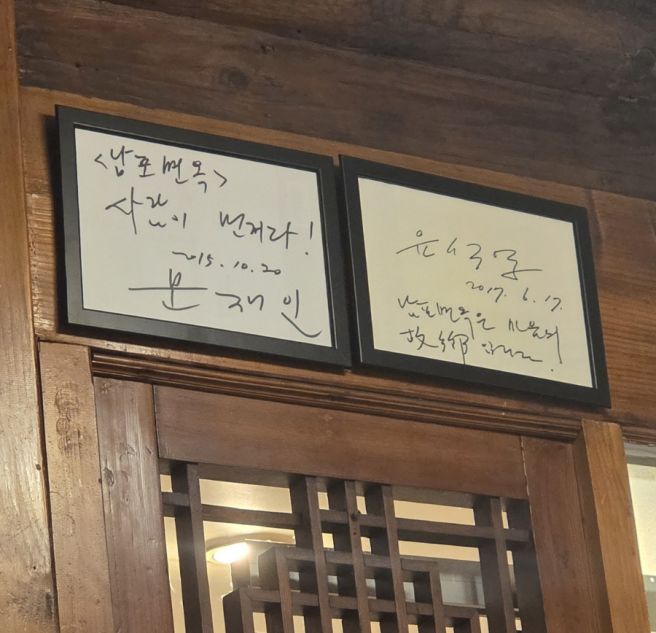 <남포면옥>
사람이 먼저다!
2015.10.20
문재인
2017. 6.17.
남포면옥은 마음의
故鄕 입니다!